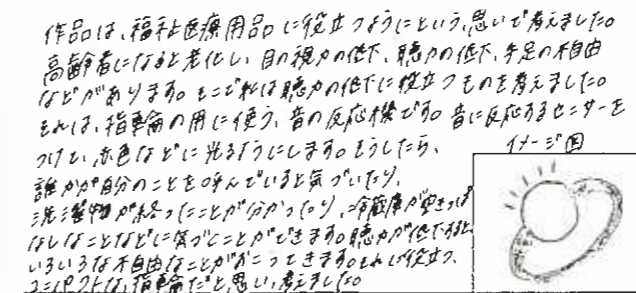 作品は、福祉医療用品に役立つようにという、思いで考えました。
高齢者になると老化し、目の視力の低下、聴力の低下、手足の不自由
などがあります。そこで私は聴力の低下に役立つものを考えました。
それは、指輪の用に使う、音の反応機です。音に反応するセンサーを
つけて、赤色などに光るようにします。そうしたら、
誰かが自分のことを呼んでいると気づいたり、
洗濯物が終ったことが分かったり、冷蔵庫が空きっぱ
なしなことなどに気づくことができます。聴力が低下すると、
いろいろな不自由なことがおこってきます。それに役立つ、
コンパクトな、指輪だと思い、考えました。
イメージ図